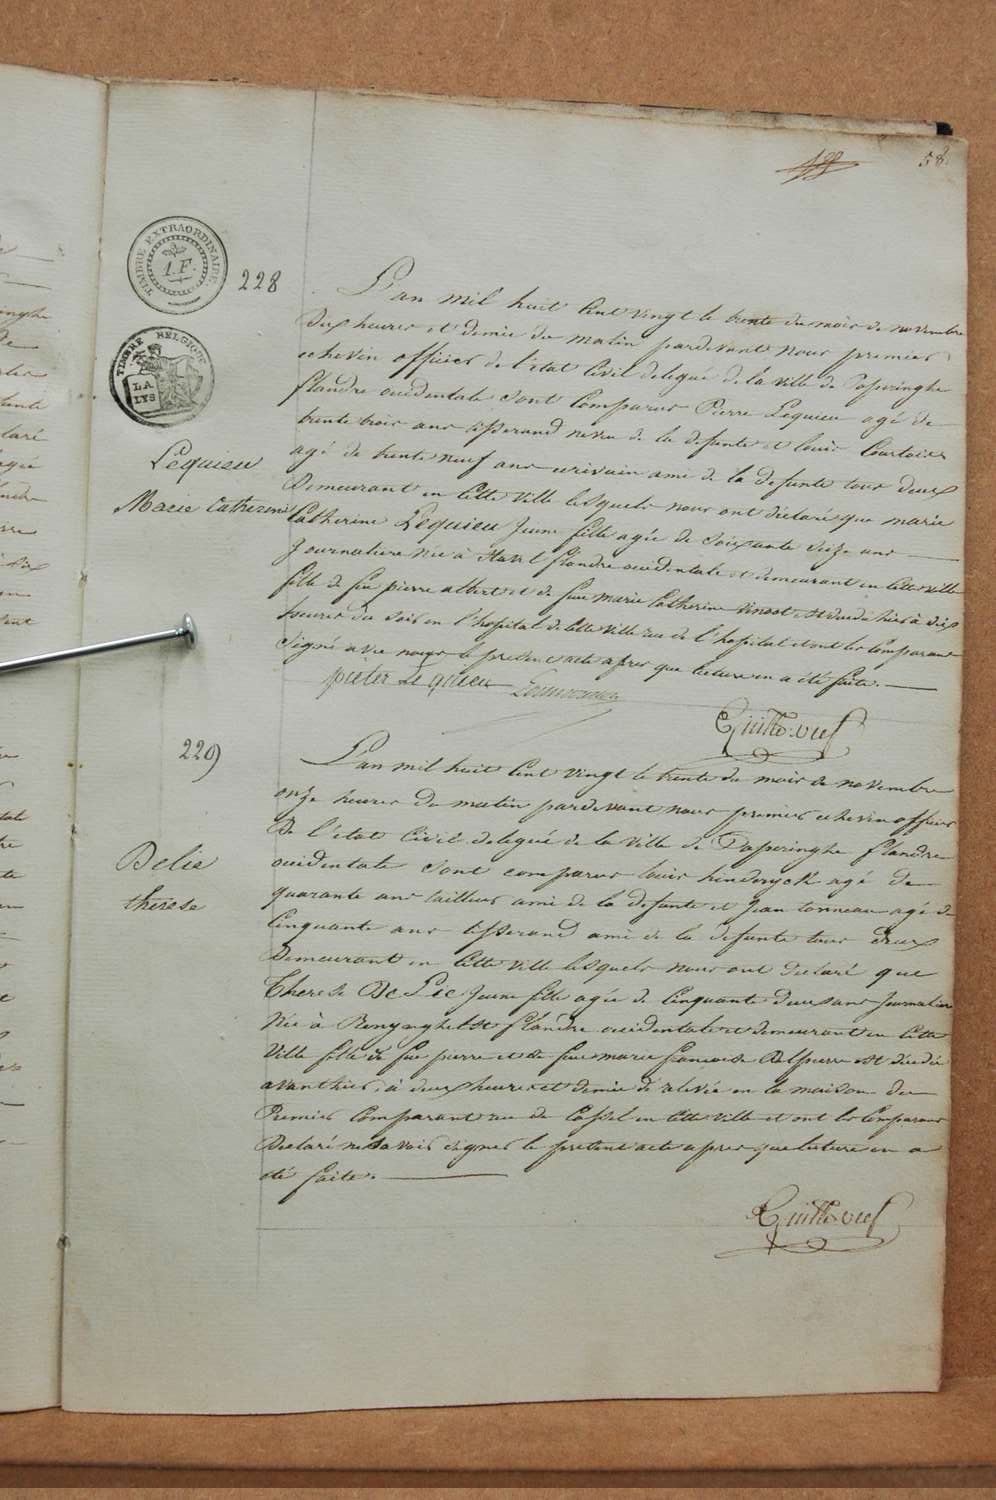 58.
TIMBRE EXTRAORDINAIRE
1.F.
228
TIMBRE BELGIQUE
LA
LYS
Lequieu
Marie Catherine
L'an mil huit cent vingt le trente du mois de novembre
dix heures et demie du matin pardevant nous premier
echevin officier de l'état civil delegué de la ville de Poperinghe
flandre occidentale sont comparus Pierre Lequieu agé de
trente trois ans tisserand neveu de la defunte et louis Courtois
agé de trente neuf ans ecrivain ami de la defunte tous deux
demeurant en cette ville lesquels nous ont déclaré que marie
Catherine Lequieu Jeune fille agée de soixante seize ans
Journaliere née à flandre occidentale et demeurant en cette ville
fille de feu pierre albert et de feue marie Catherine est decedé hier à dix
heures du soir en l'hopital de cette ville rue de l'hopital et ont les Comparans
Signé avec nous le present acte apres que lecture en a été faite.
pieter Le quieu
229
Delie
therese
L'an mil huit cent vingt le trente du mois de novembre
onze heures du matin pardevant nous premier echevin officier
de l'etat Civil delegué de la ville de Poperinghe flandre
occidentale sont comparus louis hinderyck agé de
quarante ans tailleur ami de la defunte et Jean tonneau agé de
Cinquante ans tisserand ami de la defunte tous deux
demeurant en cette ville lesquels nous ont declaré que
Therese De Lie Jeune fille agée de Cinquante deux ans Journaliere
Née à flandre occidentale et demeurant en cette
Ville fille de feu pierre et de feue marie francoise Delpierre est décédé
avanthier à deux heures et demie de relevée en la maison du
Premier Comparant rue de Cassel en cette ville et ont les Comparans
Declaré ne savoir signer le present acte apres que lecture en a
été faite.